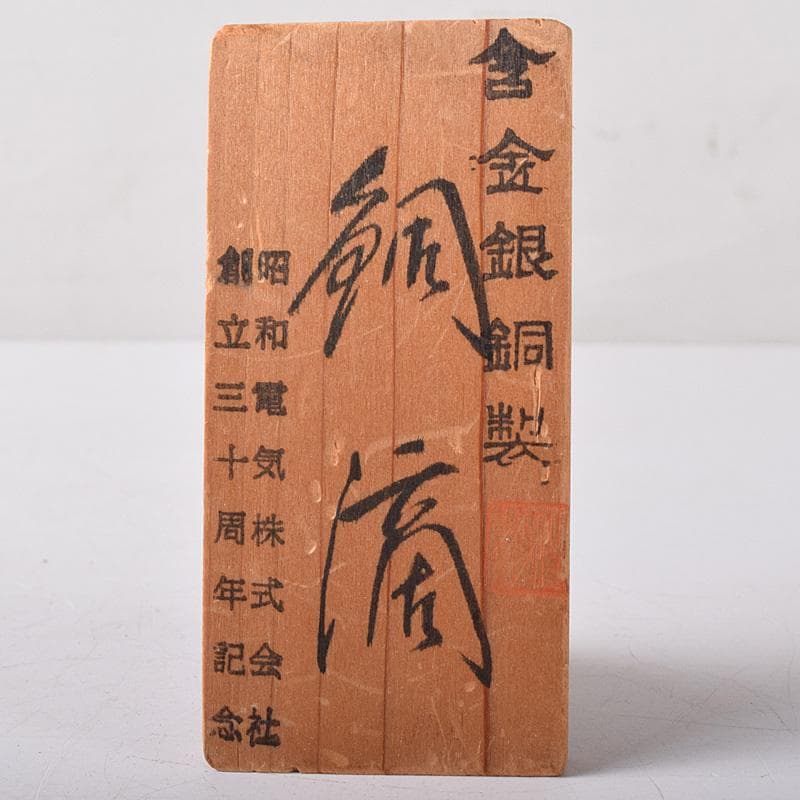 含金銀銅製
鯛滴
昭和電気株式会社
創立三十周年記念